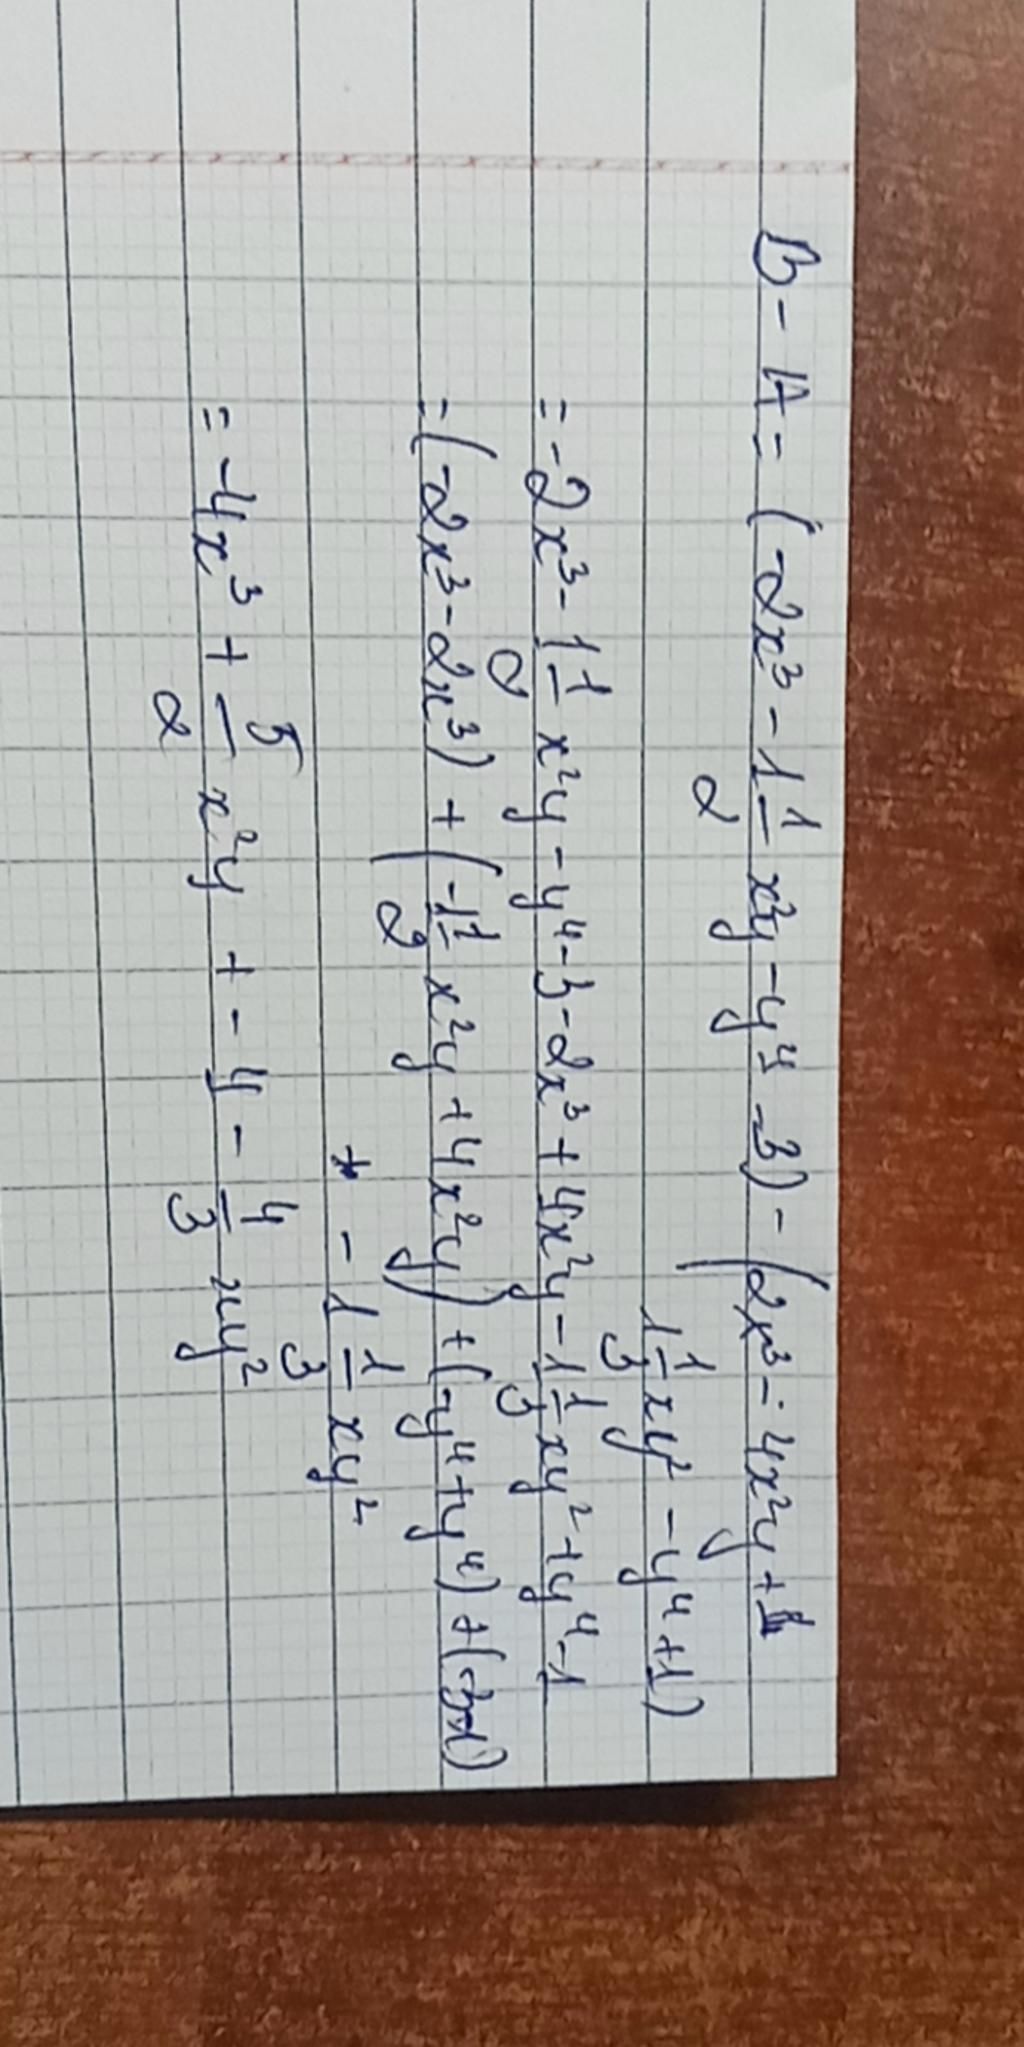 B - A = (-2x³ - 1 1/2 x²y - y⁴ - 3) - (2x³ - 4x²y +
1 1/3 xy² - y⁴ + 1)
= -2x³ - 1 1/2 x²y - y⁴ - 3 - 2x³ + 4x²y - 1 1/3 xy² + y⁴ - 1
= (-2x³ - 2x³) + (-1 1/2 x²y + 4x²y) + (-y⁴ + y⁴) + (-3-1)
+ - 1 1/3 xy²
= -4x³ + 5/2 x²y + - 4 - 4/3 xy²